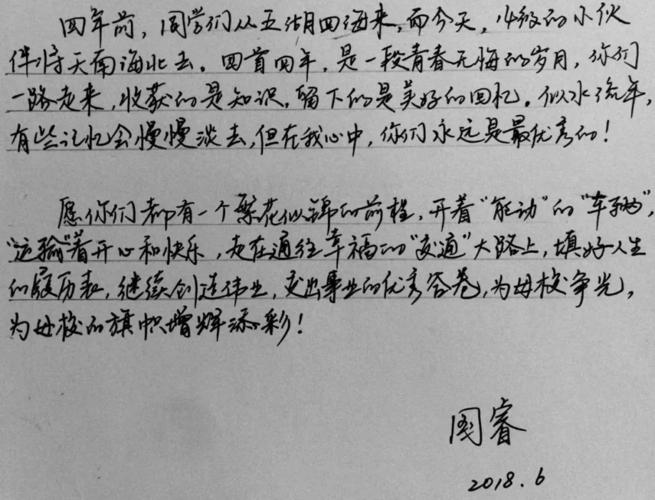 四年前，同学们从五湖四海来，而今天，14级的小伙
伴将天南海北去。回首四年，是一段青春无悔的岁月，你们
一路走来，收获的是知识，留下的是美好的回忆。似水流年，
有些记忆会慢慢淡去，但在我心中，你们永远是最优秀的！
愿你们都有一个繁花似锦的前程，开着“能动”的“车辆”，
“运输”着开心和快乐，走在通往幸福的“交通”大路上，填好人生
的履历表，继续创造伟业，交出事业的优秀答卷，为母校争光，
为母校的旗帜增辉添彩！
周睿
2018.6